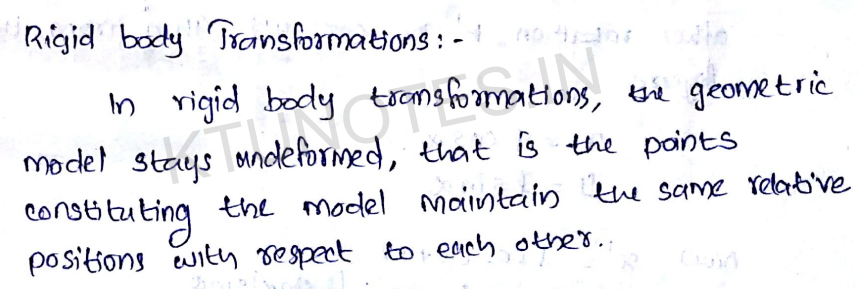 Rigid body Transformations:-
In rigid body transformations, the geometric
model stays undeformed, that is the points
constituting the model maintain the same relative
positions with respect to each other.
KTUNOTES.IN